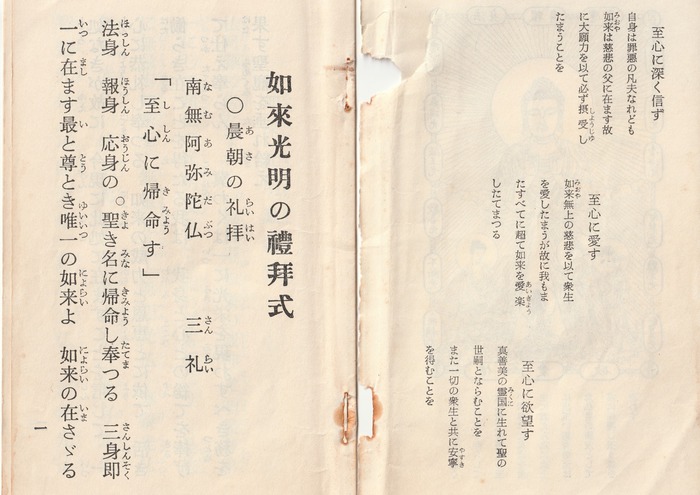 至心に深く信ず
自身は罪悪の凡夫なれども
如来は慈悲の父に在ます故
に大願力を以て必ず摂受し
たまうことを
至心に愛す
如来無上の慈悲を以て衆生
を愛したまうが故に我もま
たすべてに超て如来を愛楽
したてまつる
至心に欲望す
真善美の霊国に生れて聖の
世嗣とならむことを
また一切の衆生と共に安寧
を得むことを
如來光明の禮拜式
〇晨朝の礼拝
南無阿弥陀仏 三礼
「至心に帰命す」
法身 報身 応身の。聖き名に帰命し奉つる 三身即
一に在ます最と尊とき唯一の如来よ 如来の在さゞる
一